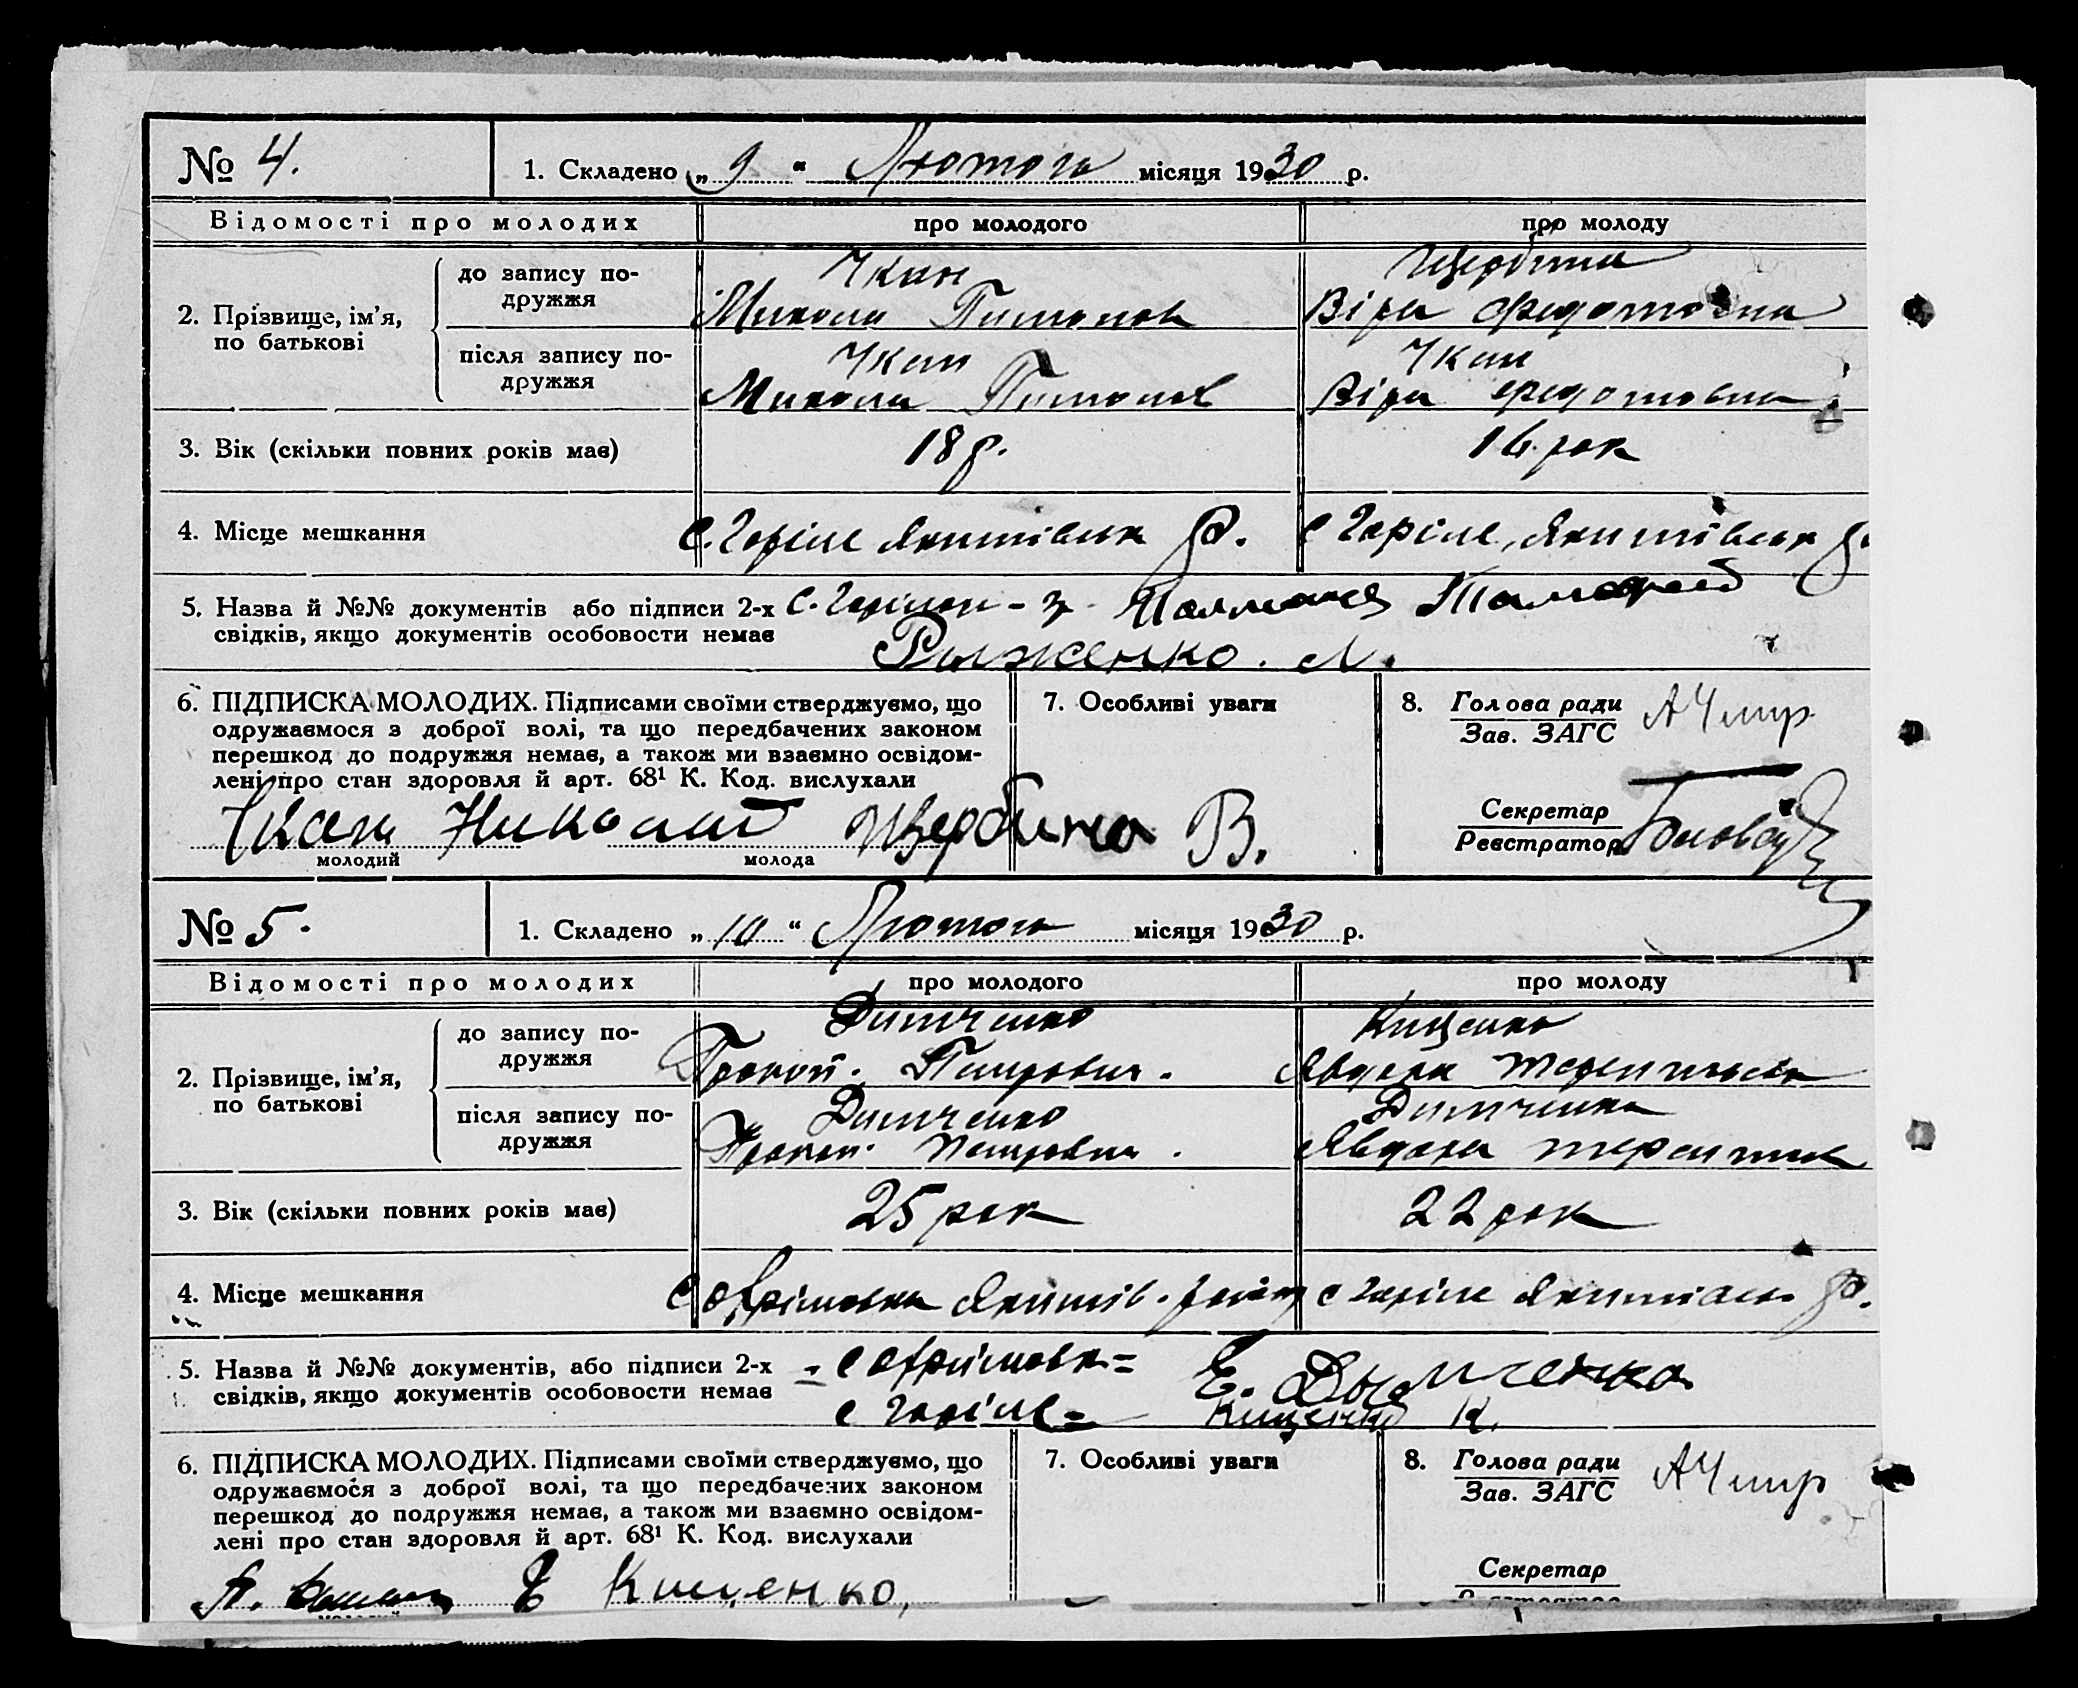 № 4. 1. Складено „9“ Лютого місяця 1930 р.
Відомості про молодих про молодого про молоду
2. Прізвище, ім’я, по батькові
до запису подружжя
Чкан
Микола Пимонов
Щербина
Віра Федотовна
після запису подружжя
Чкан
Микола Пимонов
Чкан
Віра Федотовна
3. Вік (скільки повних років має) 18 р. 16 рок
4. Місце мешкання с. Горіле Якимівськ р. с Горіле, Якимівськ р.
5. Назва й №№ документів або підписи 2-х
свідків, якщо документів особовости немає
Рыженко. Л.
6. ПІДПИСКА МОЛОДИХ. Підписами своїми стверджуємо, що
одружаємося з доброї волі, та що передбачених законом
перешкод до подружжя немає, а також ми взаємно освідом-
лені про стан здоровля й арт. 68¹ К. Код. вислухали
Чкан Николай Щербина В.
молодий молода
7. Особливі уваги
8. Голова ради
Зав. ЗАГС
Секретар
Реєстратор
№ 5. 1. Складено „10“ Лютого місяця 1930 р.
Відомості про молодих про молодого про молоду
2. Прізвище, ім’я, по батькові
до запису подружжя
Димченко
Прокоп. Петрович.
Кищенко
Явдоха
після запису подружжя
Димченко
Прокоп. Петрович.
Димченко
Явдоха
3. Вік (скільки повних років має) 25 рок 22 рок
4. Місце мешкання с Охрімовка Якимів. район с Горіле Якимівськ р.
5. Назва й №№ документів, або підписи 2-х = с Охрімовк = Е. Дымченко
свідків, якщо документів особовости немає с Горіле = Кищенко К.
6. ПІДПИСКА МОЛОДИХ. Підписами своїми стверджуємо, що
одружаємося з доброї волі, та що передбачених законом
перешкод до подружжя немає, а також ми взаємно освідом-
лені про стан здоровля й арт. 68¹ К. Код. вислухали
Кищенко,
7. Особливі уваги
8. Голова ради
Зав. ЗАГС
Секретар